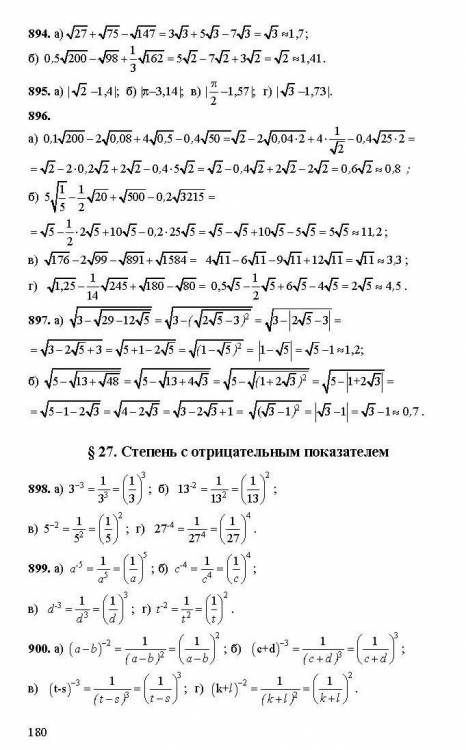 894. а) √27 + √75 – √147 = 3√3 + 5√3 – 7√3 = √3 ≈1,7;
б) 0,5√200 – √98 + 1/3 √162 = 5√2 – 7√2 + 3√2 = √2 ≈1,41.
895. а) |√2 –1,4|; б) |π–3,14|; в) |π/2 –1,57|; г) |√3 –1,73|.
896.
а) 0,1√200 – 2√0,08 + 4√0,5 – 0,4√50 = √2 – 2√0,04·2 + 4· 1/√2 – 0,4√25·2 =
= √2 – 2·0,2√2 + 2√2 – 0,4·5√2 = √2 – 0,4√2 + 2√2 – 2√2 = 0,6√2 ≈ 0,8 ;
б) 5√(1/5) – 1/2 √20 + √500 – 0,2√3215 =
= √5 – 1/2 ·2√5 + 10√5 – 0,2·25√5 = √5 – √5 + 10√5 – 5√5 = 5√5 ≈ 11,2 ;
в) √176 – 2√99 – √891 + √1584 = 4√11 – 6√11 – 9√11 + 12√11 = √11 ≈ 3,3 ;
г) √1,25 – 1/14 √245 + √180 – √80 = 0,5√5 – 1/2 √5 + 6√5 – 4√5 = 2√5 ≈ 4,5 .
897. а) √(3 – √(29 –12√5)) = √(3 – (√(2√5 – 3)²) = √(3 – |2√5 – 3|) =
= √(3 – 2√5 + 3) = √(5 + 1 – 2√5) = √((1 – √5)²) = |1 – √5| = √5 – 1 ≈ 1,2;
б) √(5 – √(13 + √48)) = √(5 – √(13 + 4√3)) = √(5 – √((1 + 2√3)²)) = √(5 – |1+2√3|) =
= √(5 – 1 – 2√3) = √(4 – 2√3) = √(3 – 2√3 + 1) = √((√3 – 1)²) = |√3 – 1| = √3 – 1 ≈ 0,7 .
§ 27. Степень с отрицательным показателем
898. а) 3⁻³ = 1/3³ = (1/3)³ ; б) 13⁻² = 1/13² = (1/13)² ;
в) 5⁻² = 1/5² = (1/5)² ; г) 27⁻⁴ = 1/27⁴ = (1/27)⁴ .
899. а) a⁻⁵ = 1/a⁵ = (1/a)⁵ ; б) c⁻⁴ = 1/c⁴ = (1/c)⁴ ;
в) d⁻³ = 1/d³ = (1/d)³ ; г) t⁻² = 1/t² = (1/t)² .
900. а) (a – b)⁻² = 1/(a – b)² = (1/(a – b))² ; б) (c+d)⁻³ = 1/(c + d)³ = (1/(c + d))³ ;
в) (t-s)⁻³ = 1/(t – s)³ = (1/(t – s))³ ; г) (k+l)⁻² = 1/(k + l)² = (1/(k + l))² .
180